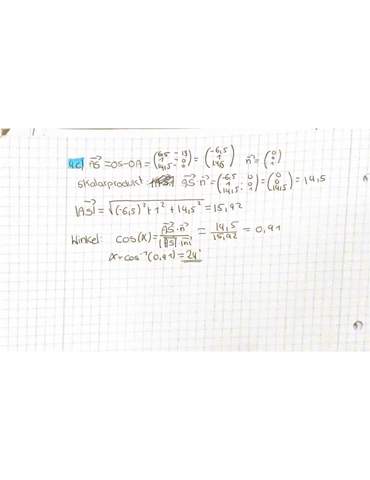 4c) AS⃗ = OS-OA = (6,5 - 13 / 1 - 0 / 14,5 - 0) = (-6,5 / 1 / 14,5) n⃗ = (0 / 0 / 1)
Skalarprodukt AS⃗ · n⃗ = (-6,5 · 0 / 1 · 0 / 14,5 · 1) = (0 / 0 / 14,5) = 14,5
|AS⃗| = √((-6,5)² + 1² + 14,5²) = 15,92
Winkel: cos(α) = AS⃗ · n⃗ / |AS⃗| · |n⃗| = 14,5 / 15,92 = 0,91
α = cos⁻¹(0,91) = 24°